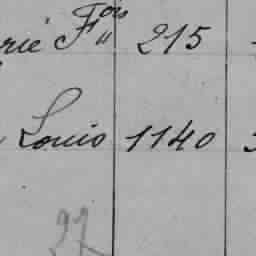 rie Fois 215
Louis 1140
27